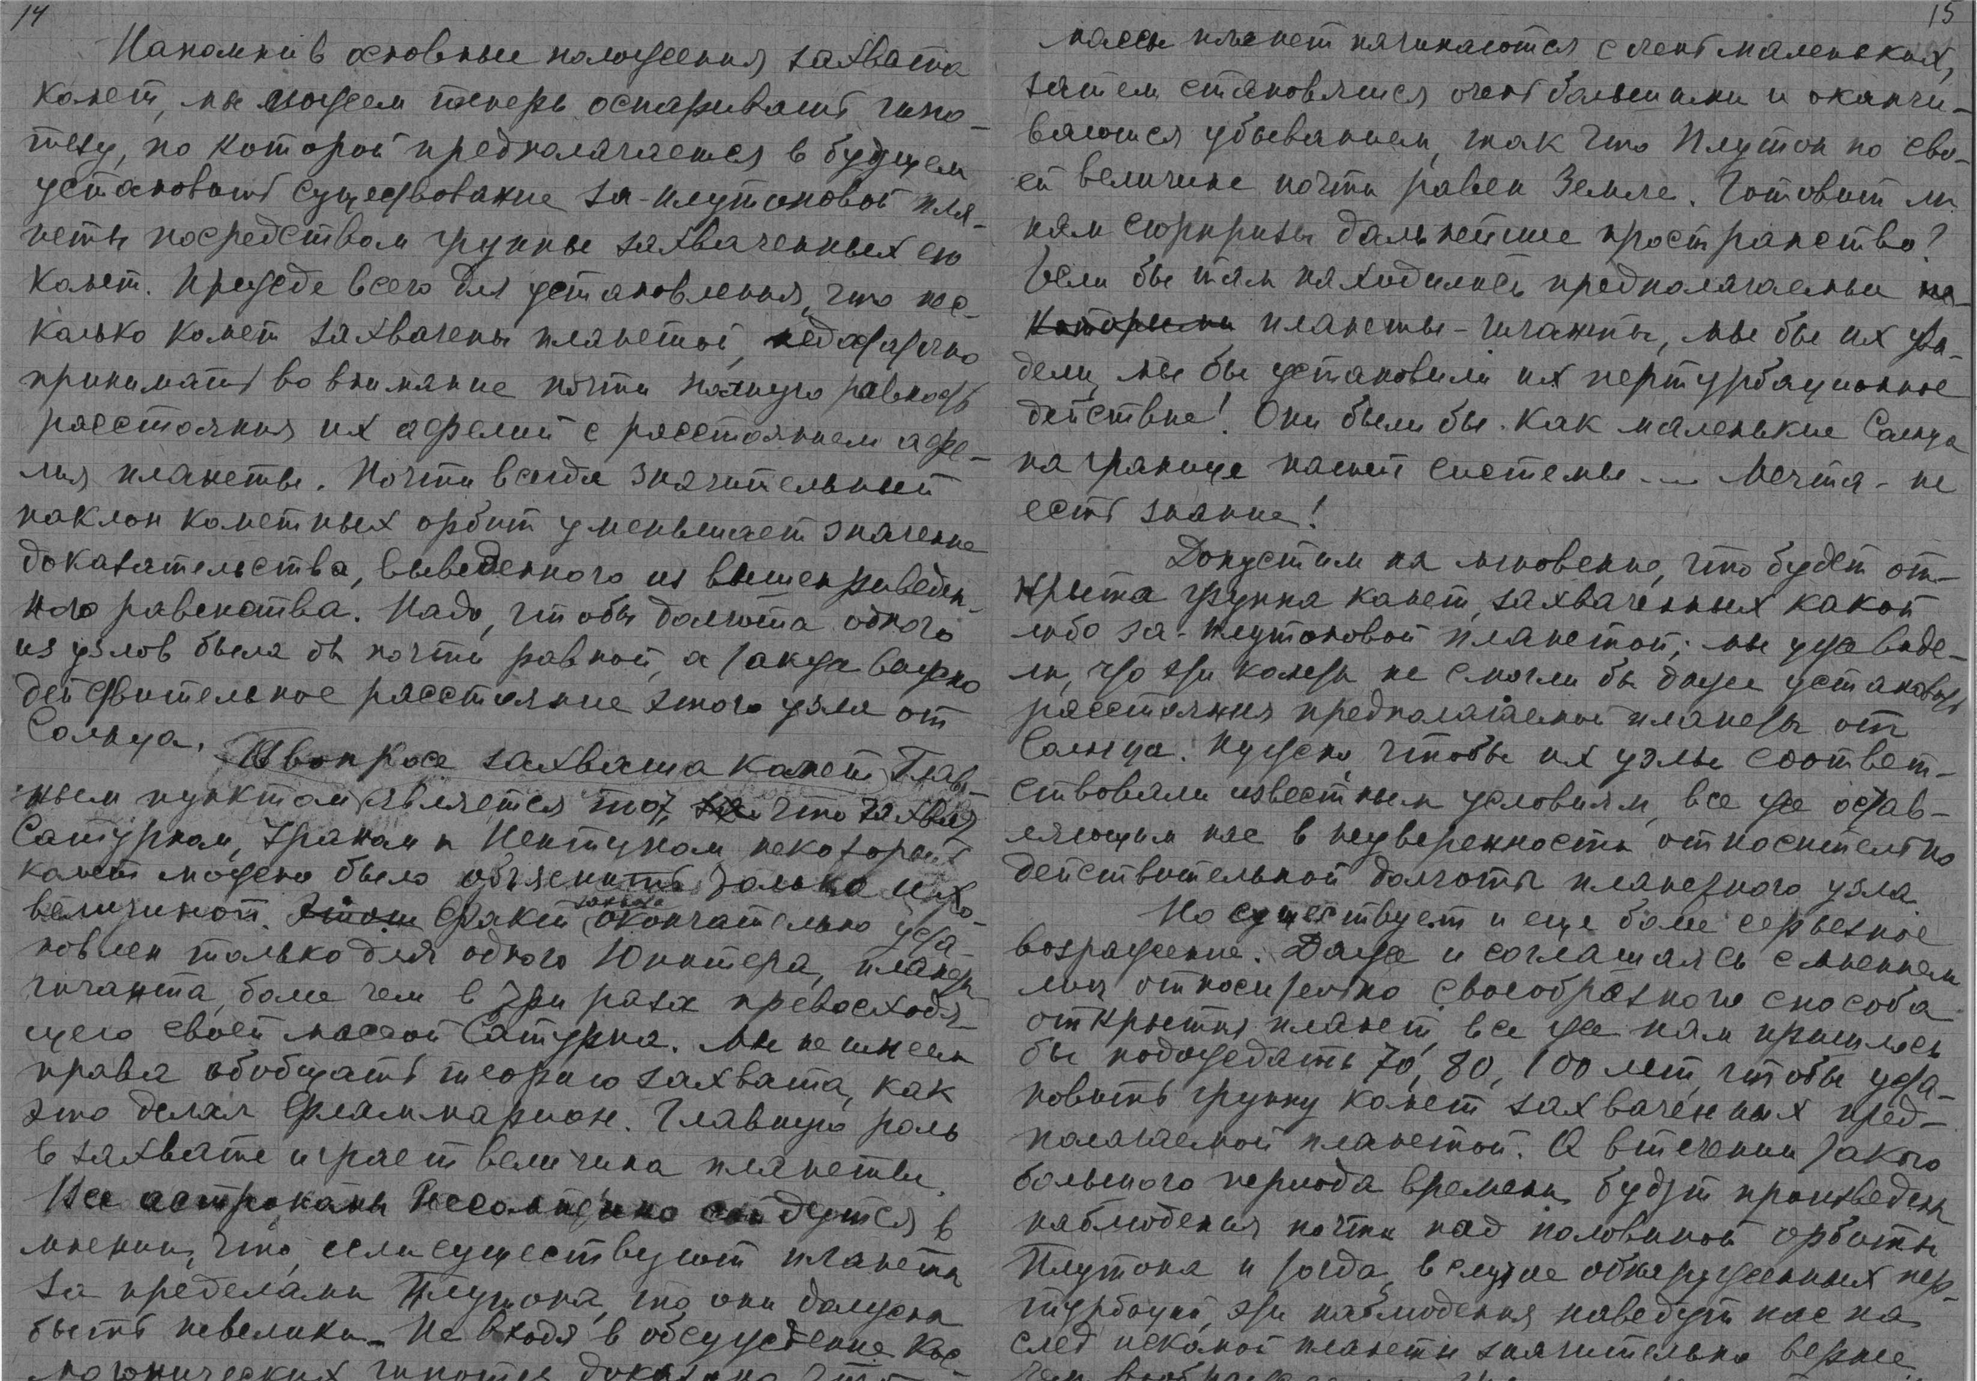 14
Напомнив основные положения захвата
комет, мы можем теперь оспаривать гипо-
тезу, по которой предполагается в будущем
установить существование за-плутоновой пла-
неты посредством группы захваченных ею
комет. Прежде всего для установления, что нес-
колько комет захвачены планетой, недостаточно
принимать во внимание почти полную равность
расстояния их афелий с расстоянием афе-
лия планеты. Почти всегда значительный
наклон кометных орбит уменьшает значение
доказательства, выведенного из вышеприведен-
ного равенства. Надо, чтобы долгота одного
из узлов была бы почти равной, а также важно
действительное расстояние этого узла от
Солнца. В вопросе захвата комет глав-
ным пунктом является тот, что захват
Сатурном, Ураном и Нептуном некоторых
комет можно было объяснить только их
величиной. Этот факт окончательно уста-
новлен только для одного Юпитера, планеты
гиганта, более чем в три раза превосходя-
щего своей массой Сатурна. Мы не имеем
права обобщать теорию захвата, как
это делал Фламмарион. Главную роль
в захвате играет величина планеты.
Все астрономы несомненно сойдутся в
мнении, что, если существуют планеты
за пределами Плутона, то они должны
быть невелики. Не входя в обсуждение кос-
могонических гипотез, доказано, что
15
массы планет начинаются с очень маленьких,
затем становятся очень большими и оканчи-
ваются убыванием, так что Плутон по сво-
ей величине почти равен Земле. Готовит ли
нам сюрпризы дальнейшее пространство?
Если бы там находились предполагаемые не-
которыми планеты-гиганты, мы бы их уви-
дели, мы бы установили их пертурбационное
действие! Они были бы как маленькие Солнца
на границе нашей системы... Мечта - не
есть знание!
Допустим на мгновение, что будет от-
крыта группа комет, захваченных какой
либо за-плутоновой планетой; мы уже виде-
ли, что эти кометы не смогли бы даже установить
расстояния предполагаемой планеты от
Солнца. Нужно, чтобы их узлы соответ-
ствовали известным условиям, все же остав-
ляющим нас в неуверенности относительно
действительной долготы планетного узла
Но существует и еще более серьезное
возражение. Даже и соглашаясь с мнением
относительно своеобразного способа
открытия планет, все же нам пришлось
бы подождать 70, 80, 100 лет, чтобы уста-
новить группу комет захваченных пред-
полагаемой планетой. А в течении такого
большого периода времени будут произведены
наблюдения почти над половиной орбиты
Плутона и тогда, в случае обнаруженных пер-
турбаций, эти наблюдения наведут нас на
след искомой планеты значительно вернее
чем